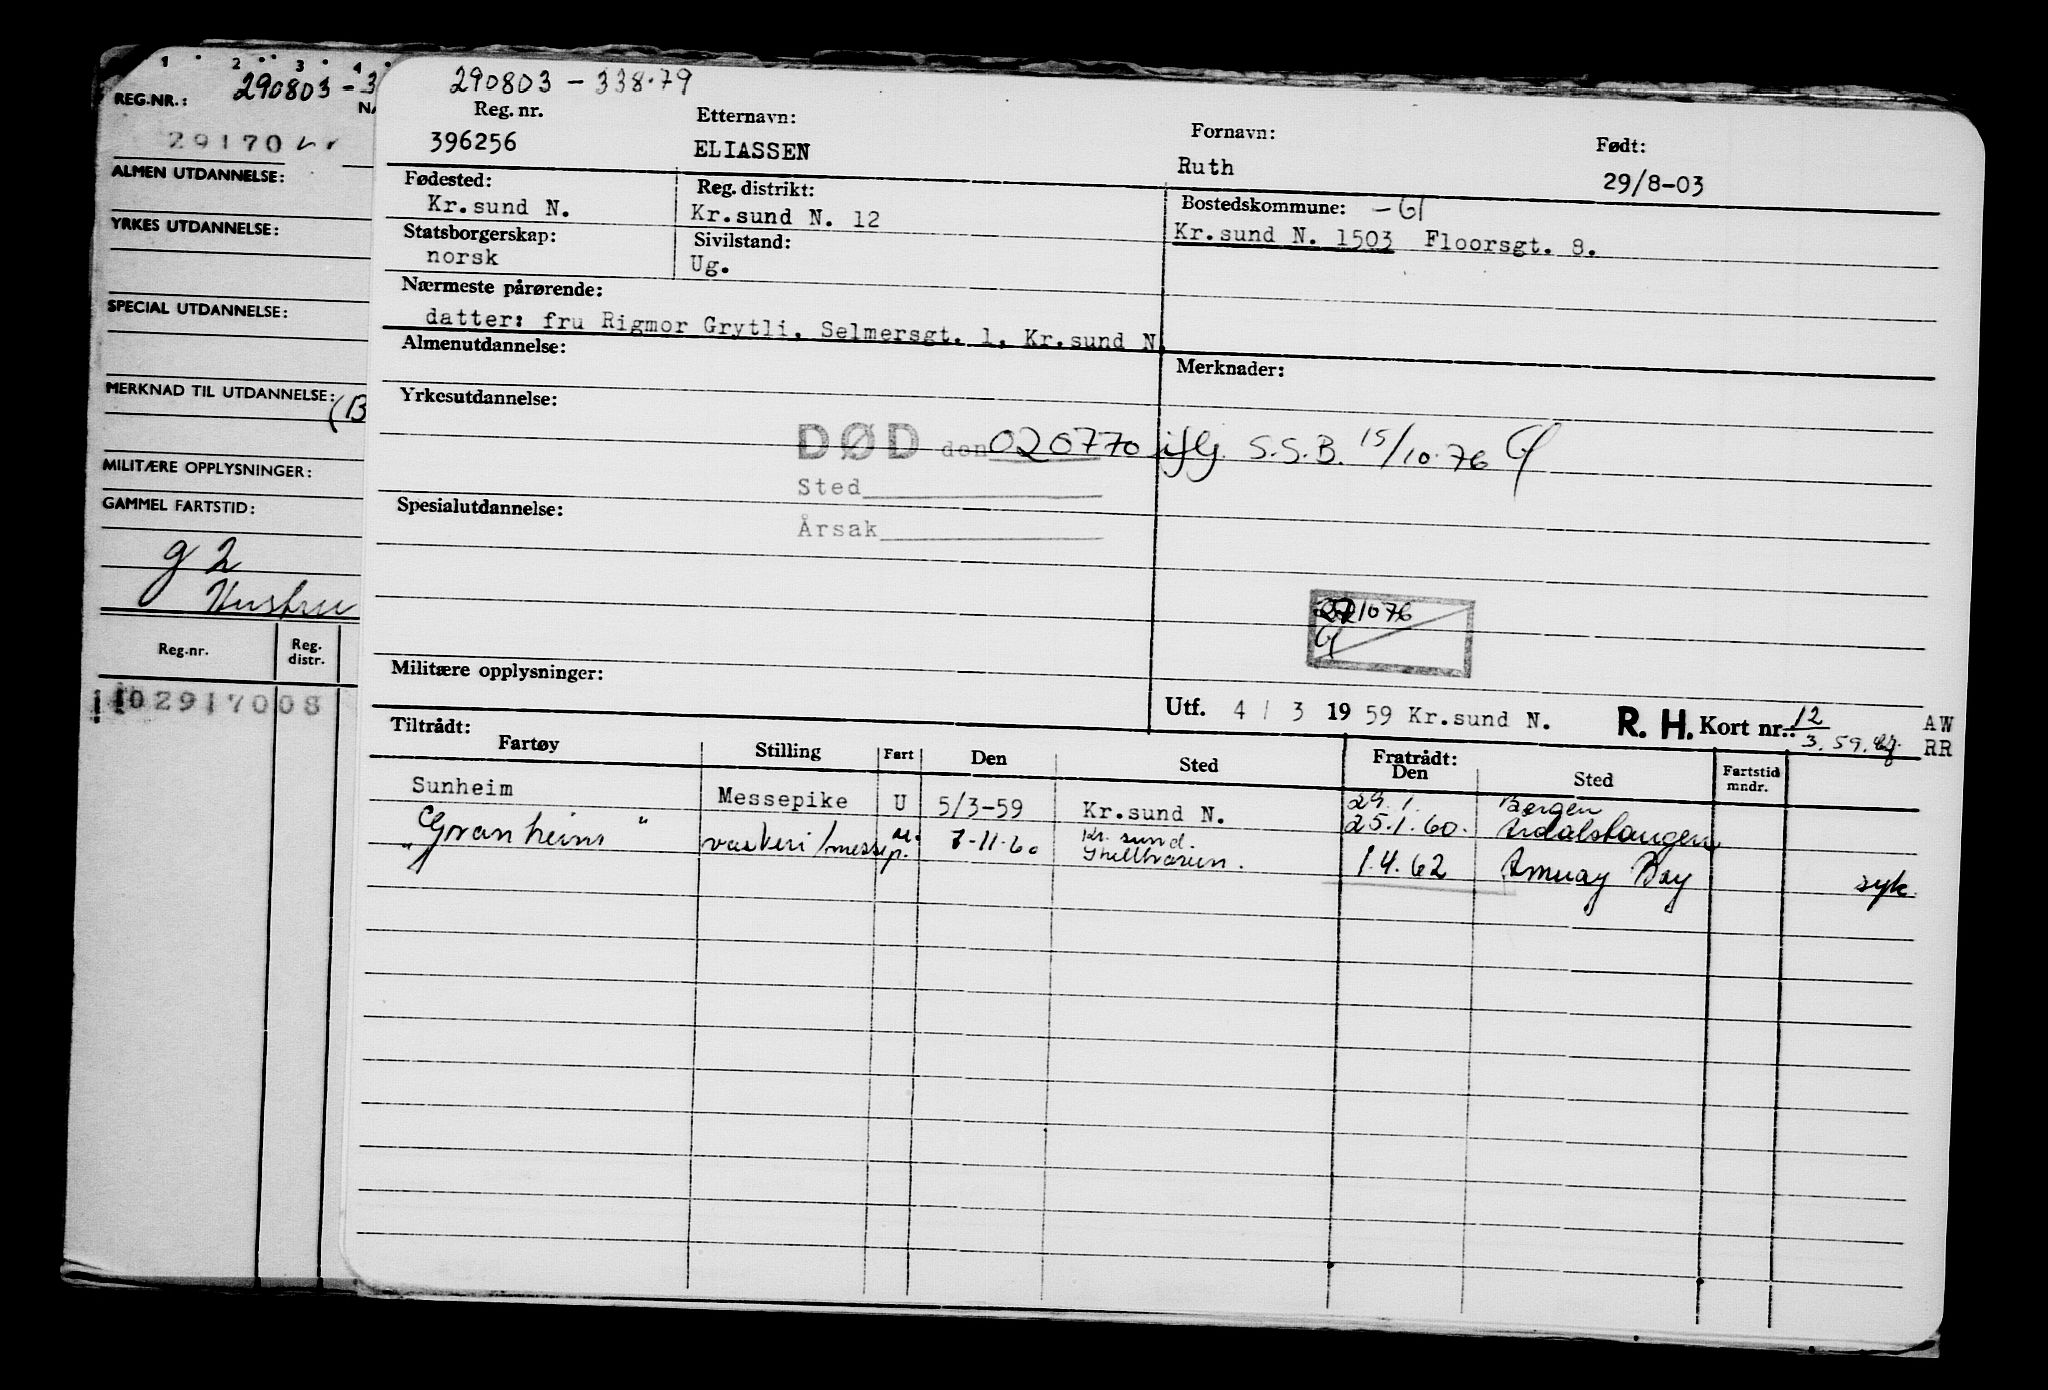 1 2 3 4
REG.NR.: 290803-3
29170
ALMEN UTDANNELSE:
YRKES UTDANNELSE:
SPECIAL UTDANNELSE:
MERKNAD TIL UTDANNELSE: (B
MILITÆRE OPPLYSNINGER:
GAMMEL FARTSTID:
g 2
Hustru
Reg.nr. Reg. distr.
0291700S
290803 - 338.79
Reg. nr. Etternavn: Fornavn: Født:
396256 ELIASSEN Ruth 29/8-03
Fødested: Reg. distrikt: Bostedskommune: -61
Kr.sund N. Kr.sund N. 12 Kr.sund N. 1503 Floorsgt. 8.
Statsborgerskap: Sivilstand:
norsk Ug.
Nærmeste pårørende:
datter: fru Rigmor Grytli, Selmersgt. 1, Kr.sund N.
Almenutdannelse: Merknader:
Yrkesutdannelse:
DØD den 020770 iflg. S.S.B. 15/10.76
Sted
Spesialutdannelse:
Årsak
1076
Militære opplysninger:
Utf. 4 / 3 1959 Kr.sund N. R. H. Kort nr.: 12/3.59. AW
RR
Tiltrådt: Fratrådt:
Fartøy Stilling Fart Den Sted Den Sted Fartstid mndr.
Sunheim Messepike U 5/3-59 Kr.sund N. 29.1. Bergen
25.1.60. Årdalstangen
"Granheim" vaskeri/messep. u. 7-11.60 Kr. sund. 1.4.62 Amuay Bay syk.